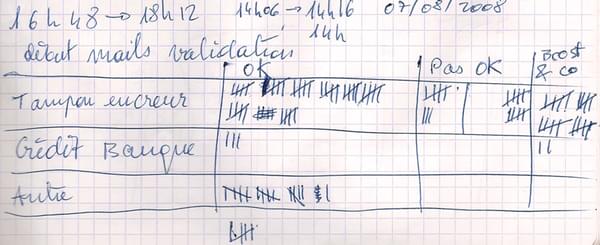 16h48 → 18h12 14h06 → 14h16 07/08/2008
14h
début mails validation
OK Pas OK Boost & co
Tampon encreur
Crédit Banque
Autre